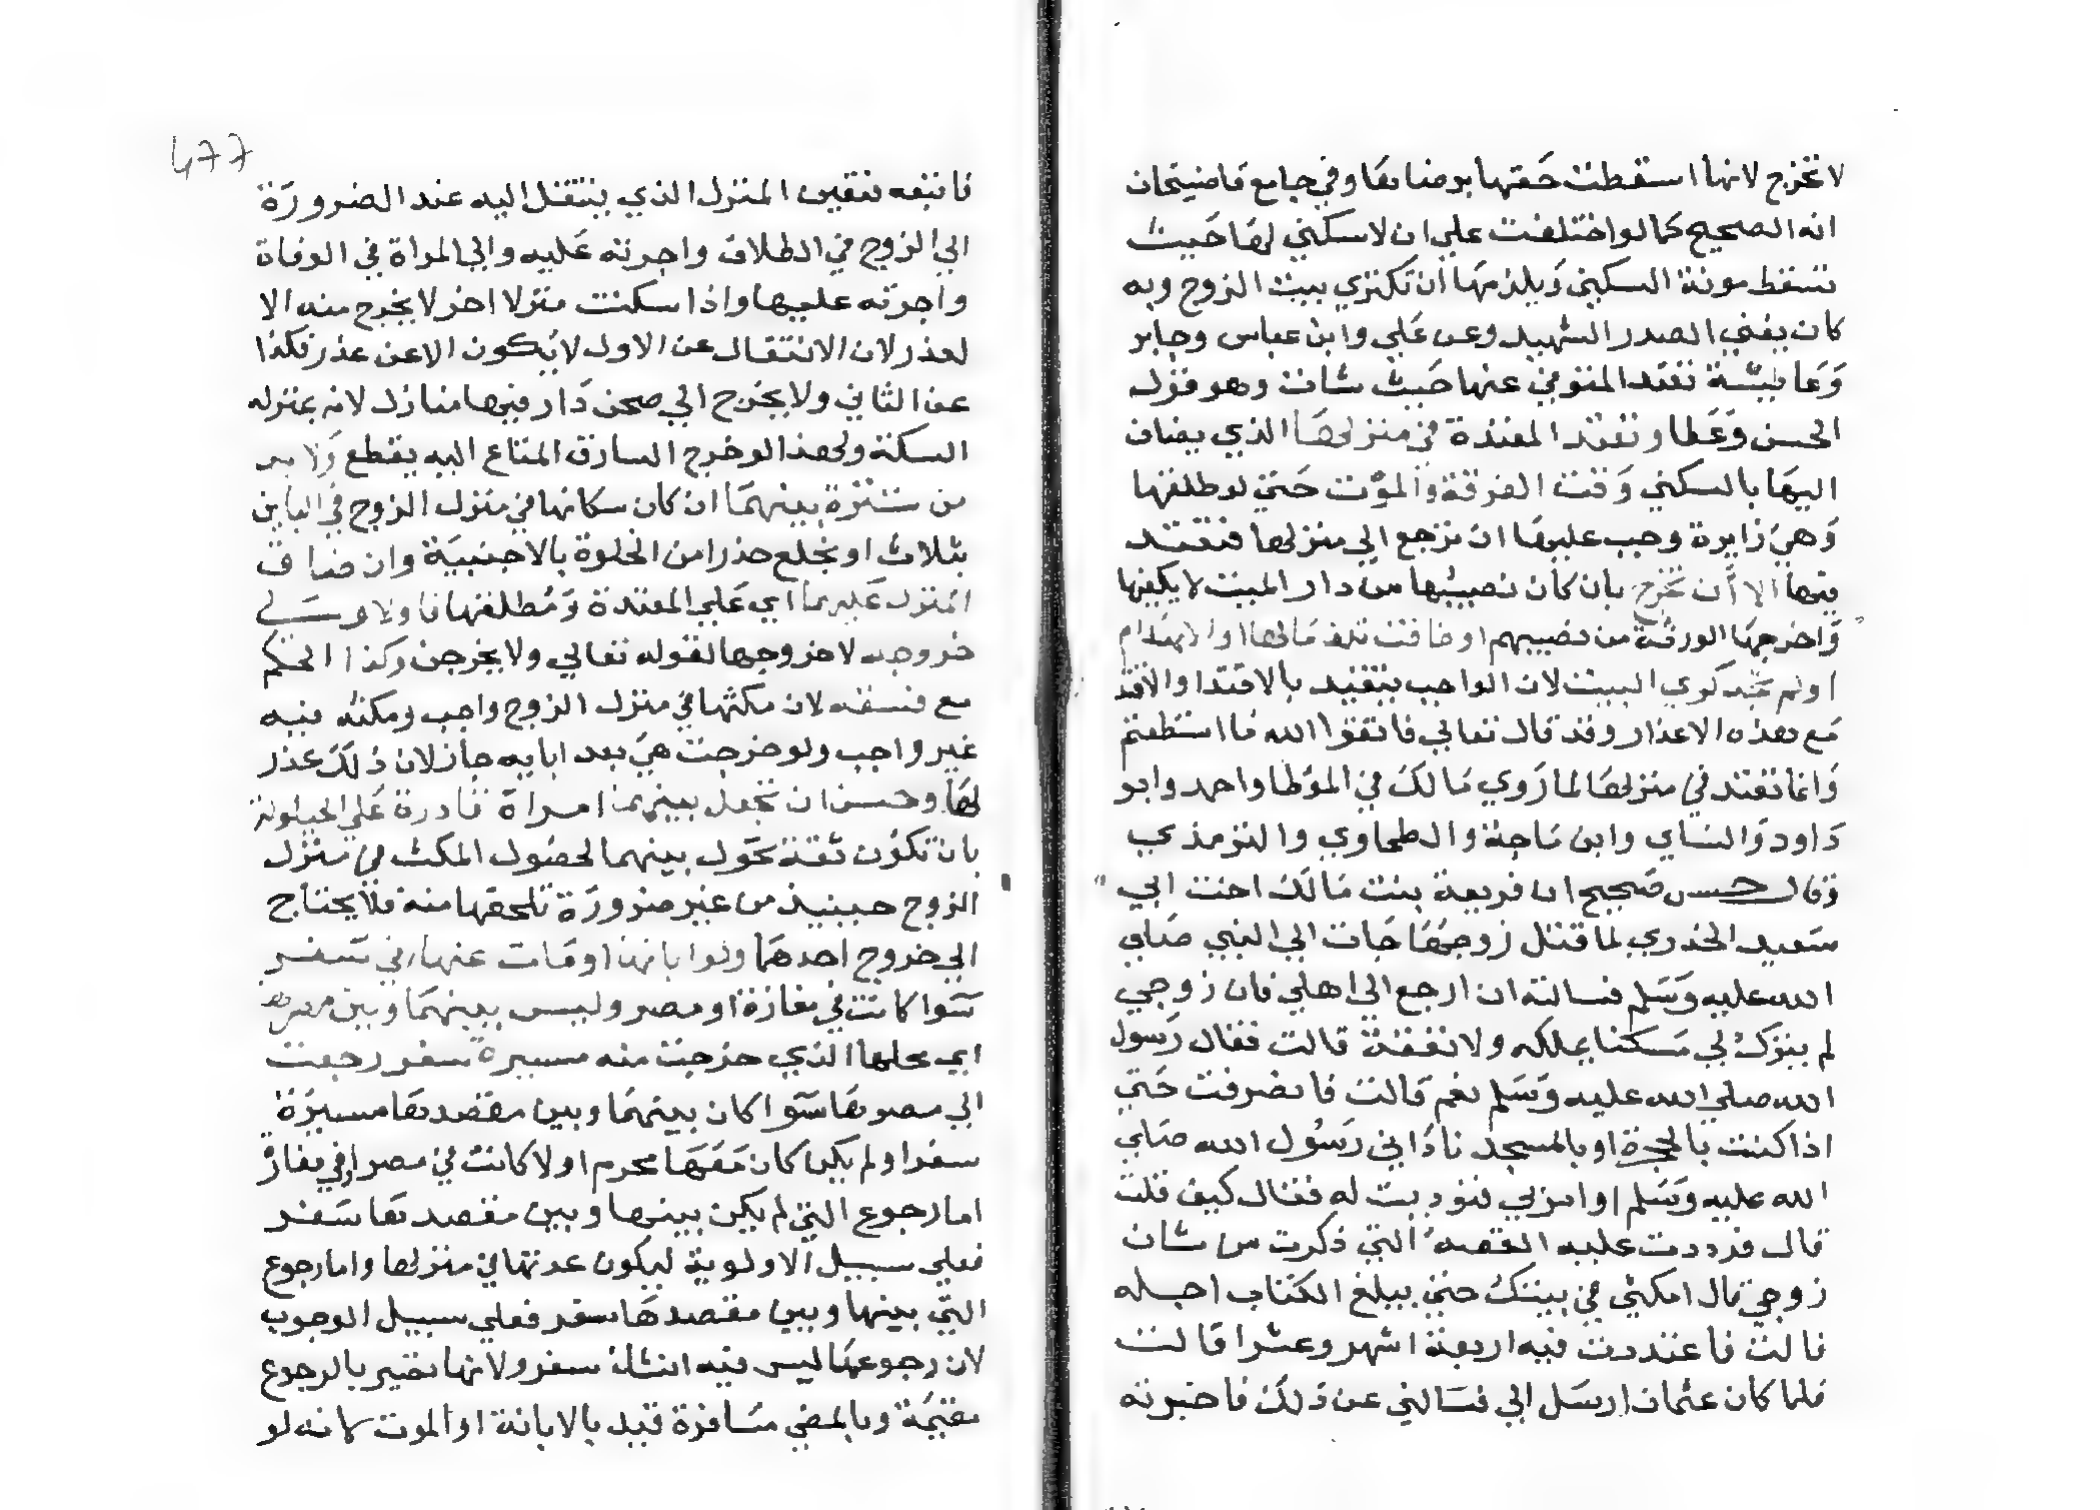 لا تخرج لانها اسقطت حقها برضاها وفي جامع قاضيخان
انه الصحيح كما لو اختلعت علي ان لا سكني لها حيث
تسقط مونة السكني ويلزمها ان تكتري بيت الزوج وبه
كان يفتي الصدر الشهيد وعن علي وابن عباس وجابر
وعايشة تعتد المتوفي عنها حيث شات وهو قول
الحسن وعطا وتعتد المعتدة في منزلها الذي يضاف
اليها بالسكني وقت الفرقة والموت حتي لو طلقها
وهي زايرة وجب عليها ان ترجع الي منزلها فتعتد
فيها الا أن تخرج بان كان نصيبها من دار الميت لا يكفيها
واخرجها الورثة من نصيبهم او خافت تلف مالها او الانهدام
او لم تجد كري البيت لان الواجب يتقيد بالاقتدا والاقتد
مع هذه الاعذار وقد قال تعالي فاتقوا الله ما استطعتم
وانما تعتد في منزلها لما روي مالك في الموطا واحمد وابو
داود والنساي وابن ماجة والطحاوي والترمذي
وقال حسن صحيح ان فريعة بنت مالك اخت ابي
سعيد الخدري لما قتل زوجها جات الي النبي صلي
الله عليه وسلم فسالته ان ارجع الي اهلي فان زوجي
لم يترك لي مسكنا يملكه ولا نفقة قالت فقال رسول
الله صلي الله عليه وسلم نعم قالت فانصرفت حتي
اذا كنت بالحجرة او بالمسجد ناداني رسول الله صلي
الله عليه وسلم او امر بي فنوديت له فقال كيف قلت
قال فرددت عليه القصة التي ذكرت من شان
زوجي قال امكثي في بيتك حتي يبلغ الكتاب اجله
قالت فاعتددت فيه اربعة اشهر وعشرا قالت
فلما كان عثمان ارسل الي فسالني عن ذلك فاخبرته
477
فاتبعه تعيين المنزل الذي ينتقل اليه عند الضرورة
الي الزوج في الطلاق واجرته عليه والي المراة في الوفاة
واجرته عليها واذا سكنت منزلا اخر لا يخرج منه الا
لعذر لان الانتقال عن الاول لا يكون الا عن عذر فكذا
عن الثاني ولا يخرج الي صحن دار فيها منازل لانه بمنزله
السكة ولهذا لو خرج السارق المتاع اليه يقطع ولا بد
من سترة بينهما ان كان سكانها في منزل الزوج في الباين
بثلاث او بخلع حذرا من الخلوة بالاجنبية وان ضاق
المنزل عليهما اي علي المعتدة ومطلقها فالاولي
خروجه لا خروجها لقوله تعالي ولا يخرجن وكذا الحكم
مع فسقه لان مكثها في منزل الزوج واجب ومكثه فيه
غير واجب ولو خرجت هي بعد ابايه جاز لان ذلك عذر
لها وحسن ان تجعل بينهما امراة قادرة علي الحيلولة
بان تكون ثقة تحول بينهما لحصول المكث في منزل
الزوج حينيذ من غير ضرورة تلحقها منه فلا يحتاج
الي خروج احدهما ولو ابانها او مات عنها في سفر
سوا كانت في مفازة او مصر وليس بينهما وبين مصرها
اي محلها الذي خرجت منه مسيرة سفر رجعت
الي مصرها سوا كان بينهما وبين مقصدها مسيرة
سفر او لم يكن كان معها محرم او لا كانت في مصر او في مفازة
اما رجوع التي لم يكن بينها وبين مقصدها سفر
فعلي سبيل الاولوية ليكون عدتها في منزلها واما رجوع
التي بينها وبين مقصدها سفر فعلي سبيل الوجوب
لان رجوعها ليس فيه انشا سفر ولانها تصير بالرجوع
مقيمة وبالمضي مسافرة قيد بالابانة او الموت لانه لو